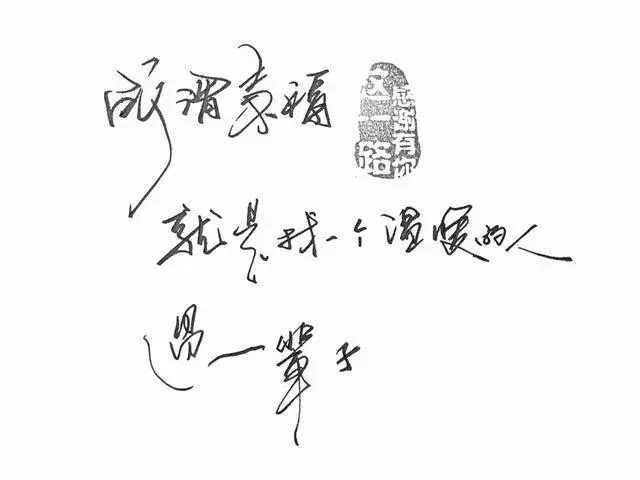 所谓幸福
这一路
感恩有你
就是找一个温暖的人
过一辈子